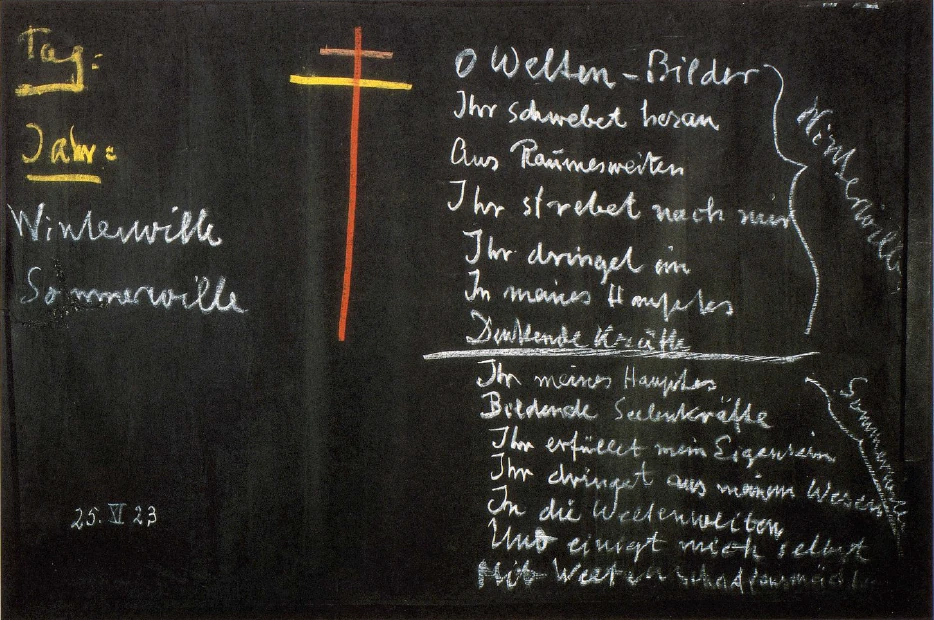 Tag:
Jahr:
Winterwille
Sommerwille
25. VI 23
O Welten-Bilder
Ihr schwebet heran
Aus Raumesweiten
Ihr strebet nach mir
Ihr dringet ein
In meines Hauptes
Denkende Kräfte
Winterwille
Ihr meines Hauptes
Bildende Seelenkräfte
Ihr erfüllet mein Eigensein
Ihr dringet aus meinem Wesen
In die Weltenweiten
Und einigt mich selbst
Mit Welten Schaffensmächten
Sommerwille